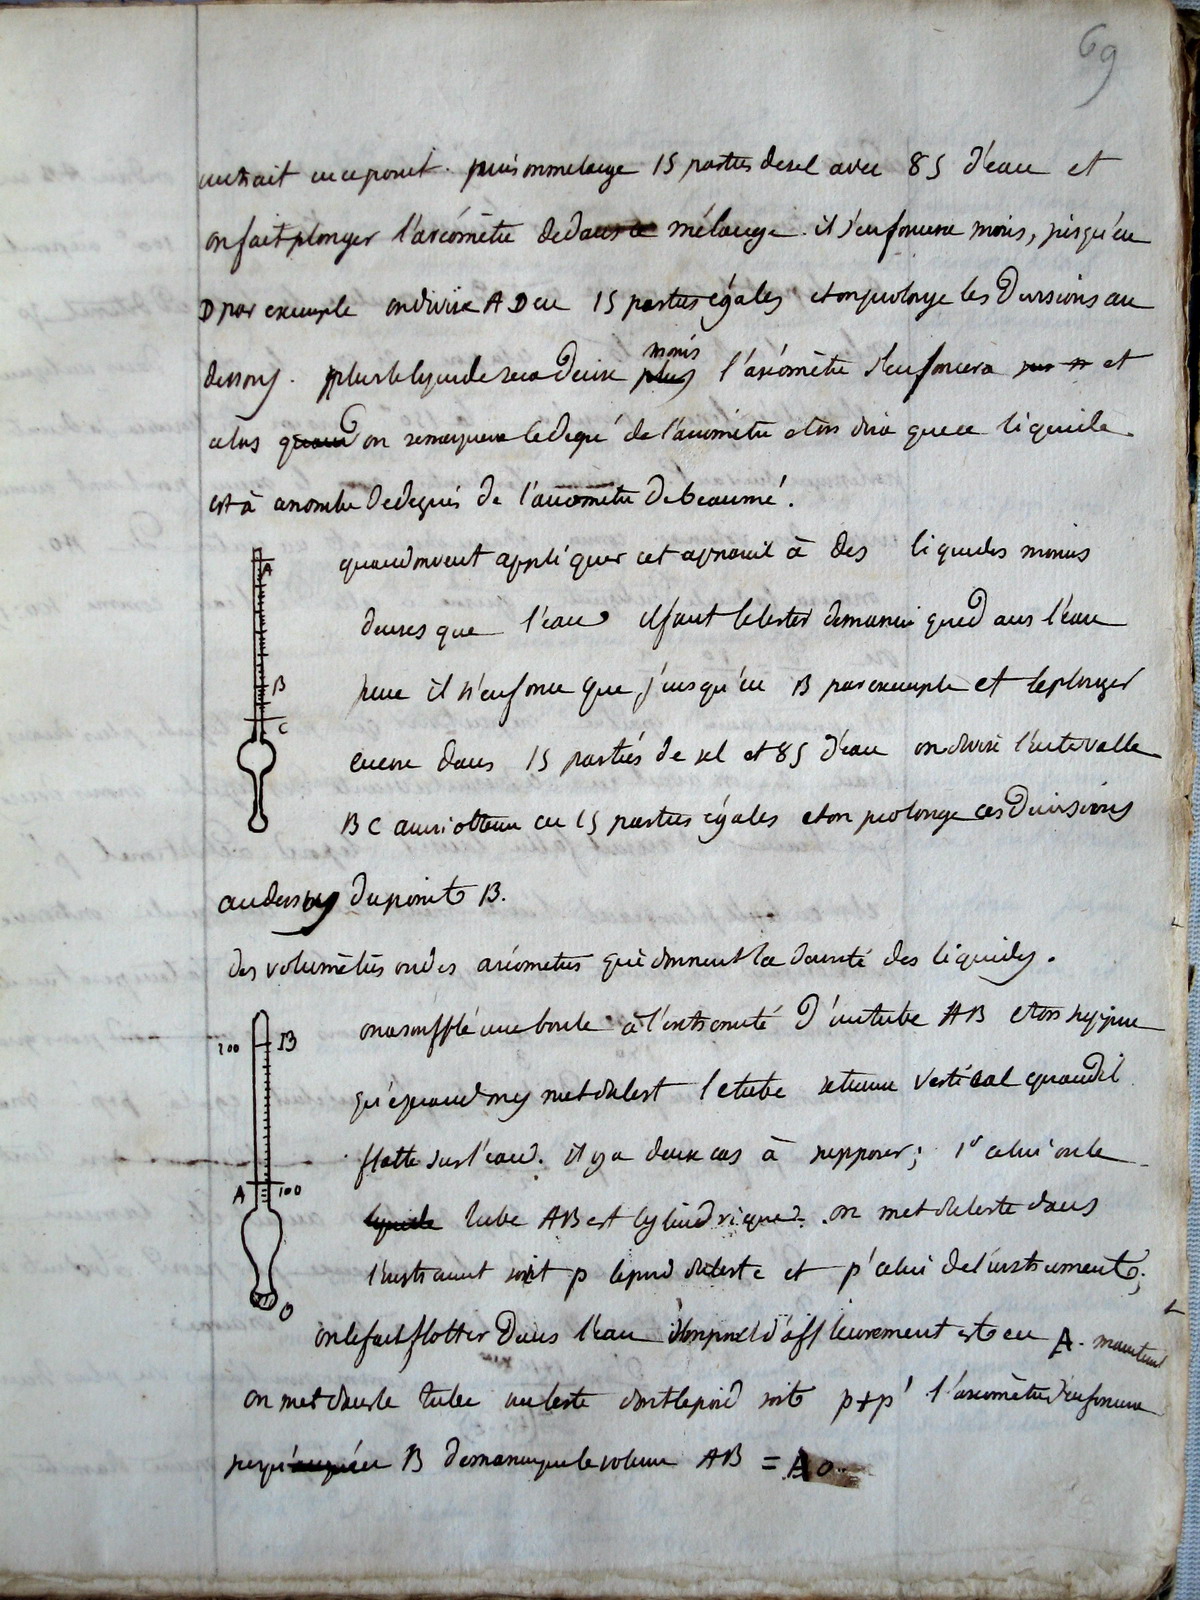 69
un trait en ce point. puis on melange 15 parties de sel avec 85 d'eau et
on fait plonger l'aréomètre de dans ce mélange. il s'enfoncera moins, jusqu'en
D par exemple on divise AD en 15 parties égales et on prolonge les Divisions au
dessous. plus le liquide sera dense plus moins l'aréomètre s'enfoncera et
alors quand on remarquera le degré de l'aréomètre et on dira que ce liquide
est à a nombre de degrés de l'aréomètre de beaumé.
quand on veut appliquer cet appareil à des liquides moins
denses que l'eau il faut le lester de maniere que dans l'eau
pure il n'enfonce que jusqu'en B par exemple et le plonger
encore dans 15 parties de sel et 85 d'eau on divise l'intervalle
BC ainsi obtenu en 15 parties égales et on prolonge ces Divisions
au dessus du point B.
des volumètres ou des aréometres qui donnent la densité des liquides.
on a soufflé une boule à l'extremité d'un tube AB et on suppose
qu'quand on y met du lest le tube se tienne vertical quand il
flotte sur l'eau. il y a deux cas à supposer; 1er celui ou le
liquide tube AB est cylindrique. on met du leste dans
l'instrument soit p le poid du leste et p' celui de l'instrument;
on le fait flotter dans l'eau le point d'affleurement est en A. maintenant
on met dans le tube un leste dont le poid soit p+p' l'aréomètre s'enfonce
jusqu'en B de maniere que le volume AB = A O.
A
B
C
200
B
A
100
O